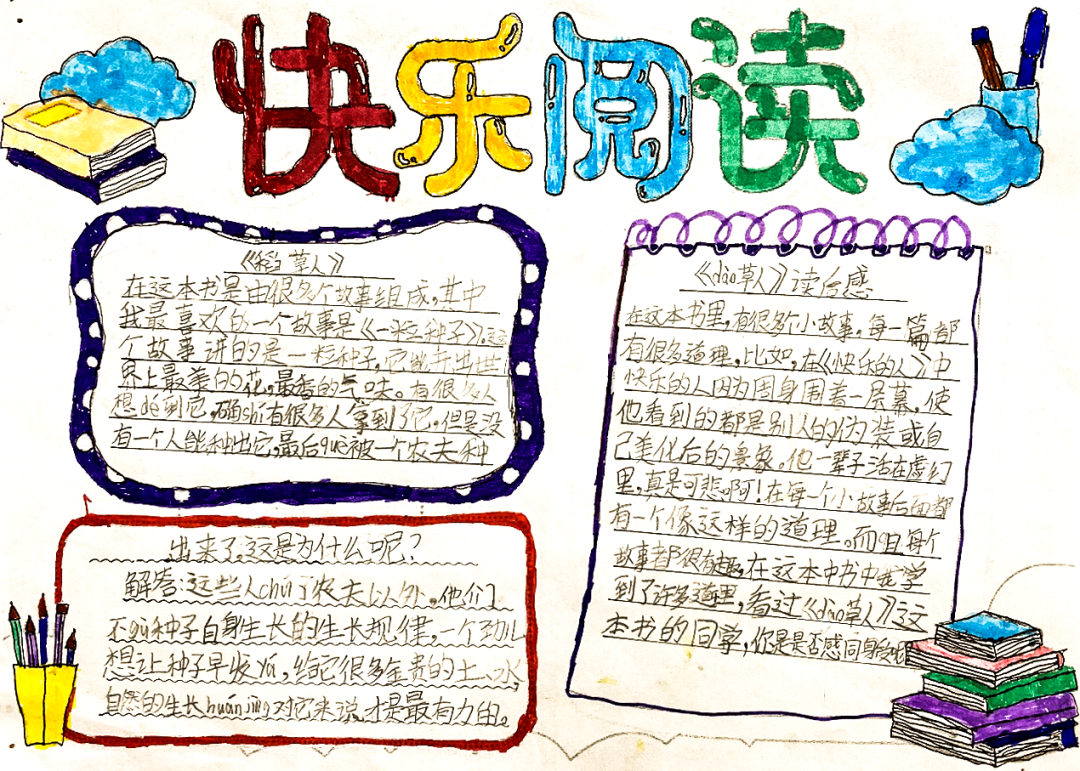 快乐阅读
《稻草人》
在这本书是由很多个故事组成,其中
我最喜欢的一个故事是《一粒种子》。这
个故事讲的是一粒种子,它能开出世
界上最美的花,最香的气味。有很多人
想dé到它,确shí有很多人拿到了它,但是没
有一个人能种出它,最后què被一个农夫种
出来了,这是为什么呢?
解答:这些人chú了农夫以外,他们
不gù种子自身生长的生长规律,一个劲儿
想让种子早发yá,给它很多金贵的土、水,
自然的生长huánjìng对它来说,才是最有力的。
《dào草人》读后感
在这本书里,有很多个小故事。每一篇都
有很多道理,比如,在《快乐的人》中
快乐的人因为周身围着一层幕,使
他看到的都是别人的伪装或自
己美化后的景象。他一辈子活在虚幻
里,真是可悲啊!在每一个小故事后面都
有一个像这样的道理。而且每个
故事都很有趣,在这本中书中我学
到了许多道理,看过《dào草人》这
本书的同学,你是是否感同身受呢